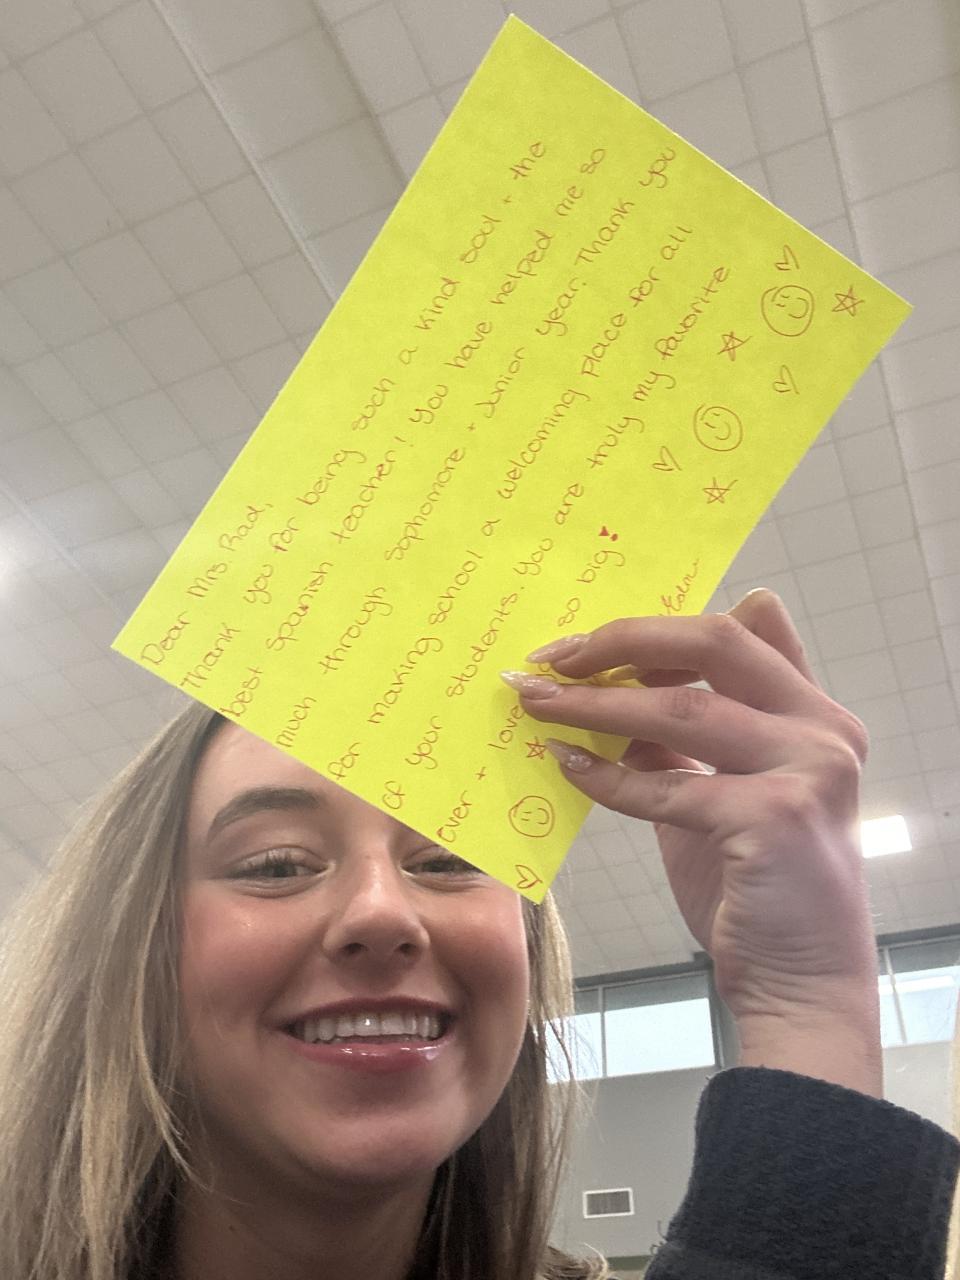 Dear Mrs. Rad,
Thank you for being such a kind soul + the
best Spanish teacher! You have helped me so
much through Sophomore + Junior year. Thank you
for making school a welcoming place for all
of your students. You are truly my favorite
ever + love so big!